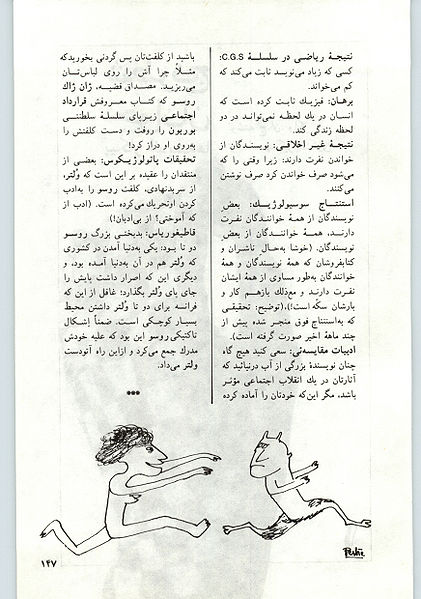 نتیجهٔ ریاضی در سلسلهٔ C.G.S:
کسی که زیاد می‌نویسد ثابت می‌کند که
کم می‌خواند.
برهان: فیزیک ثابت کرده است که
انسان در یک لحظه نمی‌تواند در دو
لحظه زندگی کند.
نتیجهٔ غیر اخلاقی: نویسندگان از
خواندن نفرت دارند؛ زیرا وقتی را که
می‌شود صرف خواندن کرد صرف نوشتن
می‌کنند.
استنتاج سوسیولوژیک: بعضی
نویسندگان از همهٔ خوانندگان نفرت
دارند، همهٔ خوانندگان از بعضی
نویسندگان. (خوشا به‌حال ناشران و
کتابفروشان که همهٔ نویسندگان و همهٔ
خوانندگان به‌طور مساوی از همهٔ ایشان
نفرت دارند و مع‌ذلک بازهم کار و
بارشان سکّه است!)،(توضیح: تحقیقی
که به‌استنتاج فوق منجر شده پیش از
چند ماههٔ اخیر صورت گرفته است).
ادبیات مقایسه‌ئی: سعی کنید هیچ گاه
چنان نویسندهٔ بزرگی از آب درنیائید که
آثارتان در یک انقلاب اجتماعی مؤثر
باشد، مگر این‌که خودتان را آماده کرده
باشید از کلفت‌تان پس گردنی بخوریدکه
مثلاً چرا آش را روی لباس‌تان
می‌ریزید. مصداق قضیه، ژان ژاک
روسو که کتاب معروفش قرارداد
اجتماعی زیرپای سلسلهٔ سلطنتی
بوربون را روفت و دست کلفتش را
به‌روی او دراز کرد!
تحقیقات پاتولوژیکوس: بعضی از
منتقدان را عقیده بر این است که وُلتر،
از سربدنهادی، کلفت روسو را به‌ادب
کردن اوتحریک می‌کرده است. (ادب از
که آموختی؟ از بی‌ادبان!)
قاطیغوریاس: بدبختی بزرگ روسو
دو تا بود: یکی به‌دنیا آمدن در کشوری
که وُلتر هم در آن به‌دنیا آمده بود، و
دیگری این که اصرار داشت پایش را
جای پای وُلتر بگذارد؛ غافل از این که
فرانسه برای دو تا وُلتر داشتن محیط
بسیار کوچکی است. ضمناً اِشکال
تاکتیکی روسو این بود که علیه خودش
مدرک جمع می‌کرد و ازاین راه آتودست
ولتر می‌داد.
•••
۱۴۷